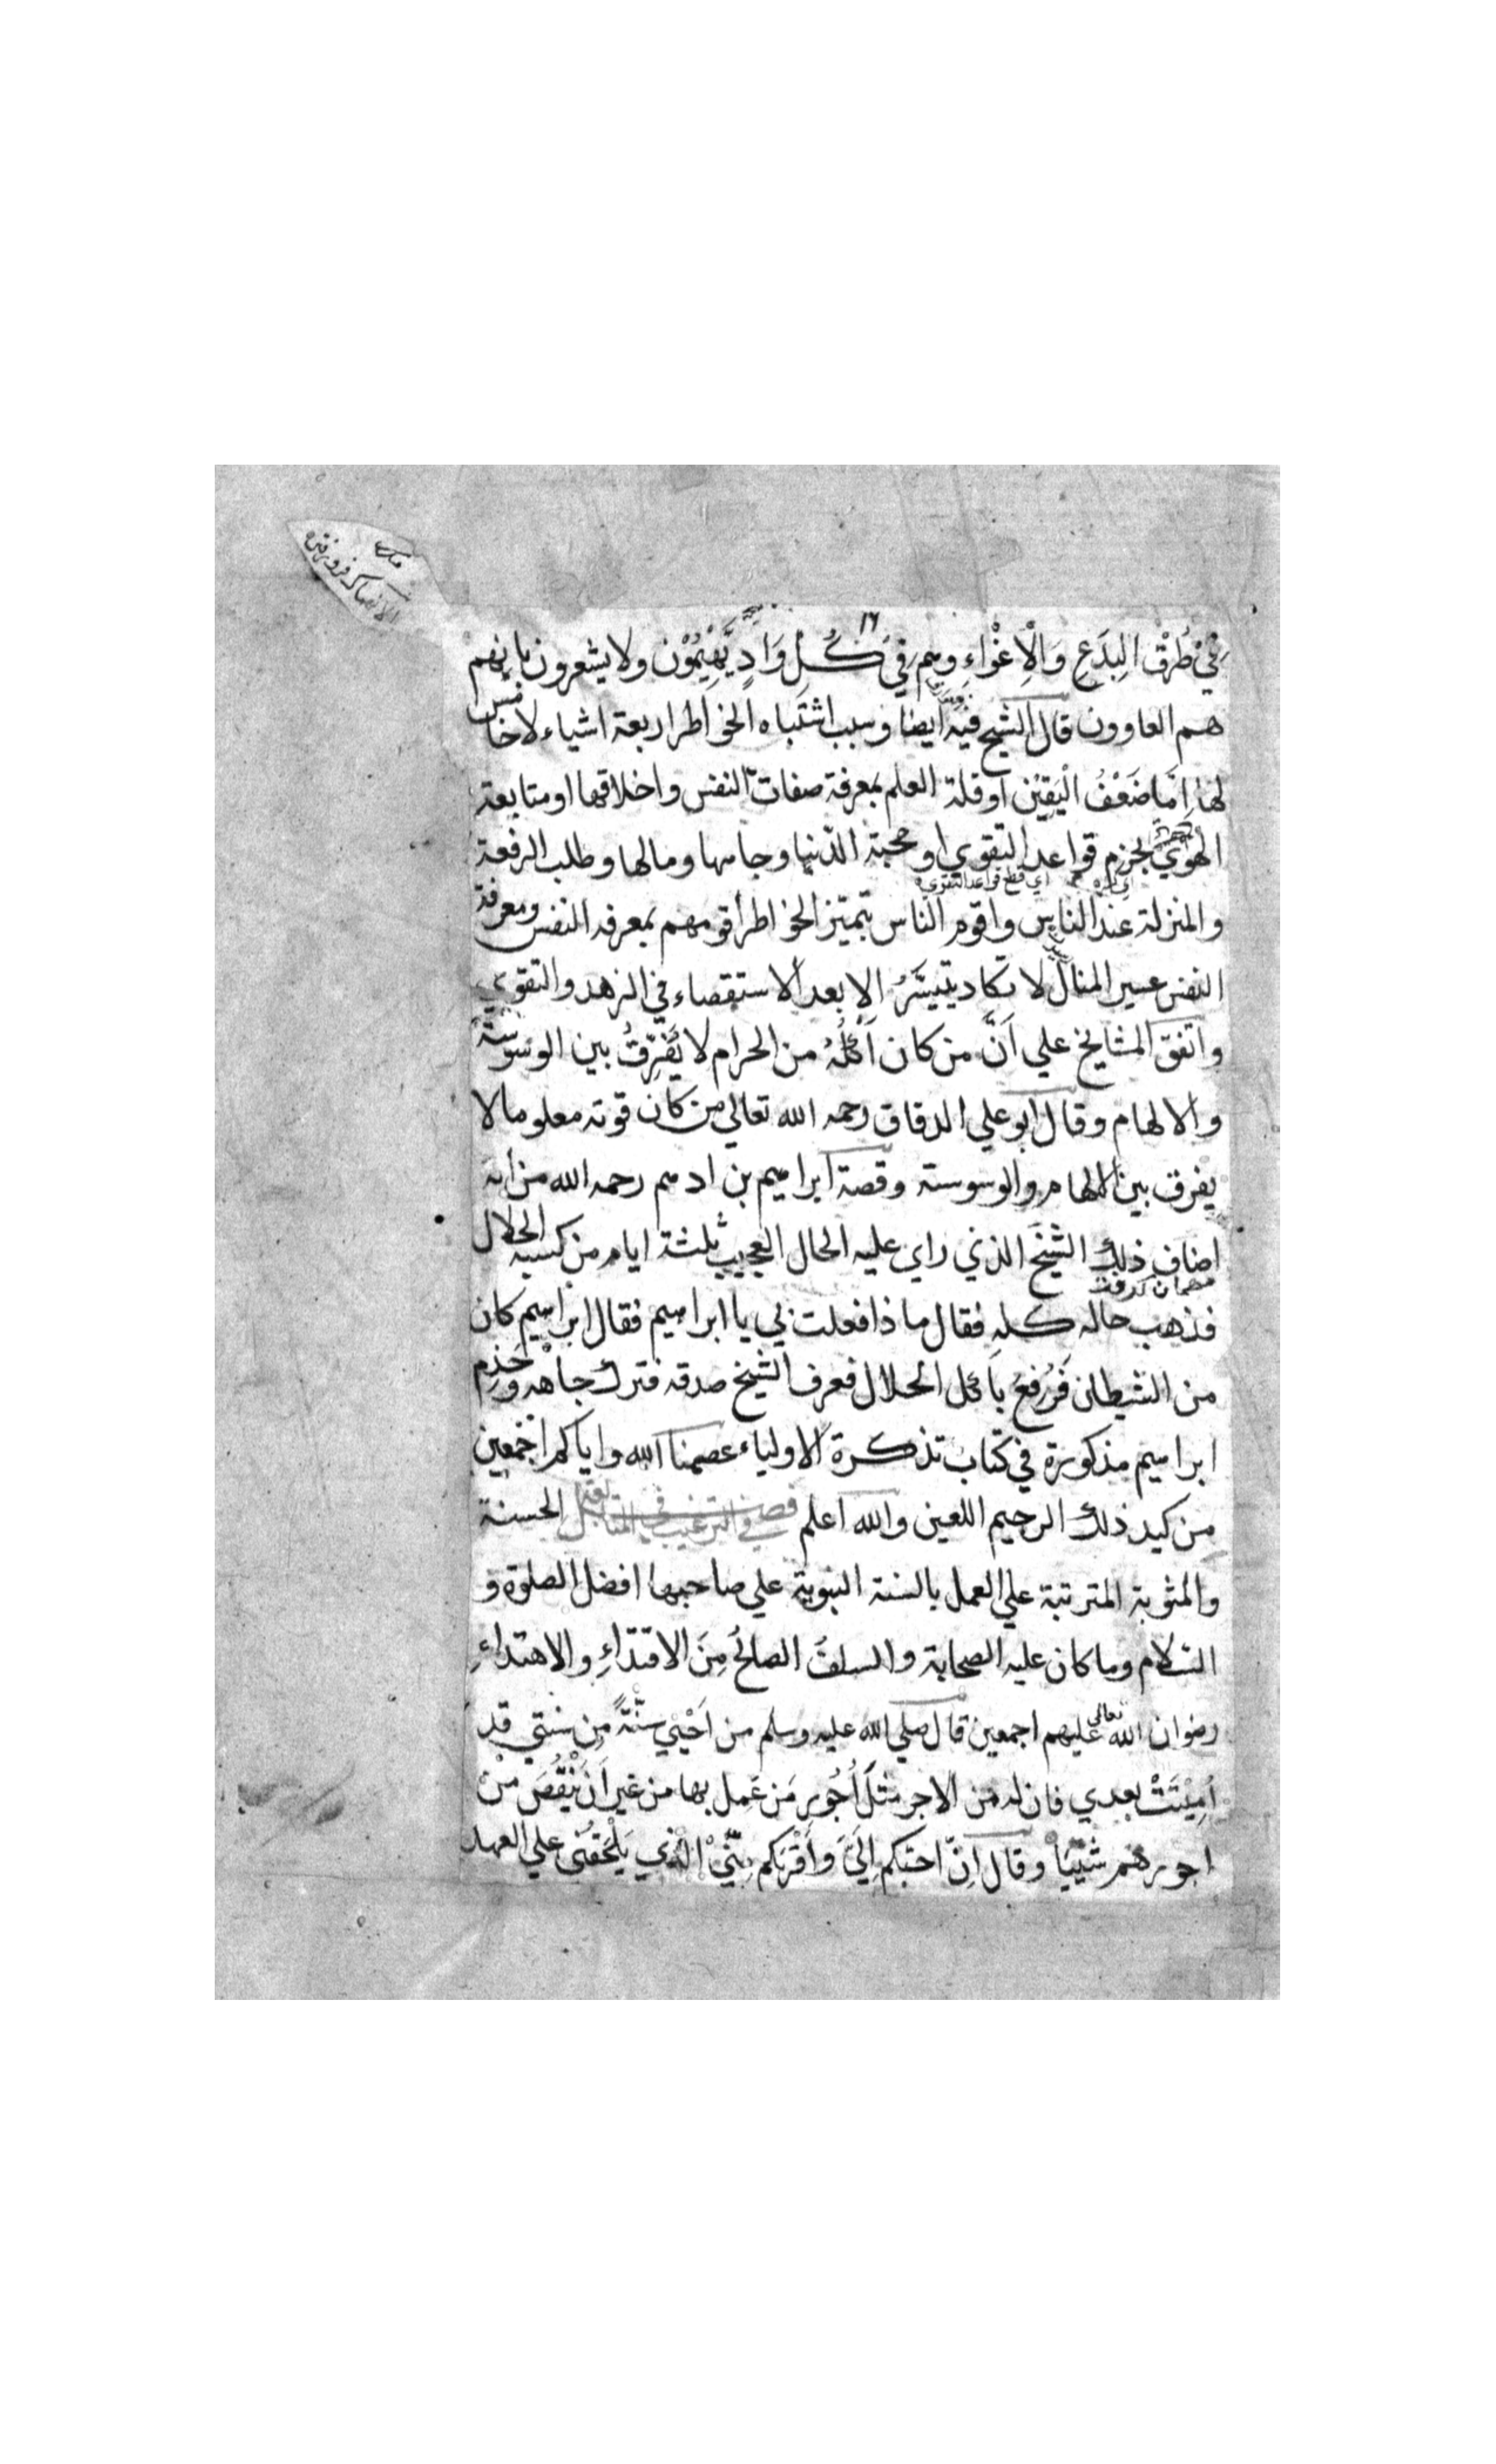 ١٦
في طُرُقِ البِدَعِ وَالْاِغْوَاءِ وهم في كُلِ وَادٍ يَّهِيْمُوْن ولا يشعرون بانهم
هم الغاوون قال الشيخ فيه ايضا وسبب اشتباه الخواطر اربعة اشياء لا خامس
لها اِمَّا ضَعْفُ الْيَقِيْن او قلة العلم بمعرفة صفات النفس واخلاقها او متابعة
الهوي بخرم قواعد التقوي او محبة الدنيا وجاهها ومالها وطلب الرفعة
اي قطع قواعد التقوي
والمنزلة عند الناس واقوم الناس بتميّز الخواطر اقومهم بمعرفة النفس ومعرفة
النفس عسير المنال لا تكاد يتيسَّرُ الا بعد الاستقصاء في الزهد والتقوي
واتفق المشايخ علي اَنَّ من كان اَكْلُهُ من الحرام لا يُفَرِّقُ بين الوسوسة
والالهام وقال ابو علي الدقاق رحمه الله تعالي من كان قوته معلوما لا
يفرق بين الالهام والوسوسة وقصة ابراهيم بن ادهم رحمه الله من انه
اضاف ذلك الشيخ الذي راي عليه الحال العجيب ثلثة ايام من كسبه الحلال
مهمان كرفت
فذهب حاله كله فقال ما ذا فعلت بي يا ابراهيم فقال ابراهيم كان
من الشيطان فَرُفِعَ باكل الحلال فعرف الشيخ صدقه فترك جاهه وخدم
ابراهيم مذكورة في كتاب تذكرة الاولياء عصمنا الله واياكم اجمعين
من كيد ذلك الرجيم اللعين والله اعلم فصل في الترغيب في المتابعة الحسنة
والمثوبة المترتبة علي العمل بالسنة النبوية علي صاحبها افضل الصلوة و
السّلام وما كان عليه الصحابة والسلفُ الصالحُ مِنَ الاقتداءِ والاهتداءِ
رضوان الله تعالي عليهم اجمعين قال صلي الله عليه وسلم من اَحْيٰي سنّةً مِن سنتي قد
اُمِيْتَتْ بعدي فان له من الاجر مثلَ اُجُورِ مَن عَمِل بها من غير اَنْ يَنْقُصَ مِنْ
اجورهم شَيْئًا وقال اِنّ احبَّكم اِليَّ وَاَقْرَبَكم مِنّيْ الذي يَلْحَقُنِي علي العهد